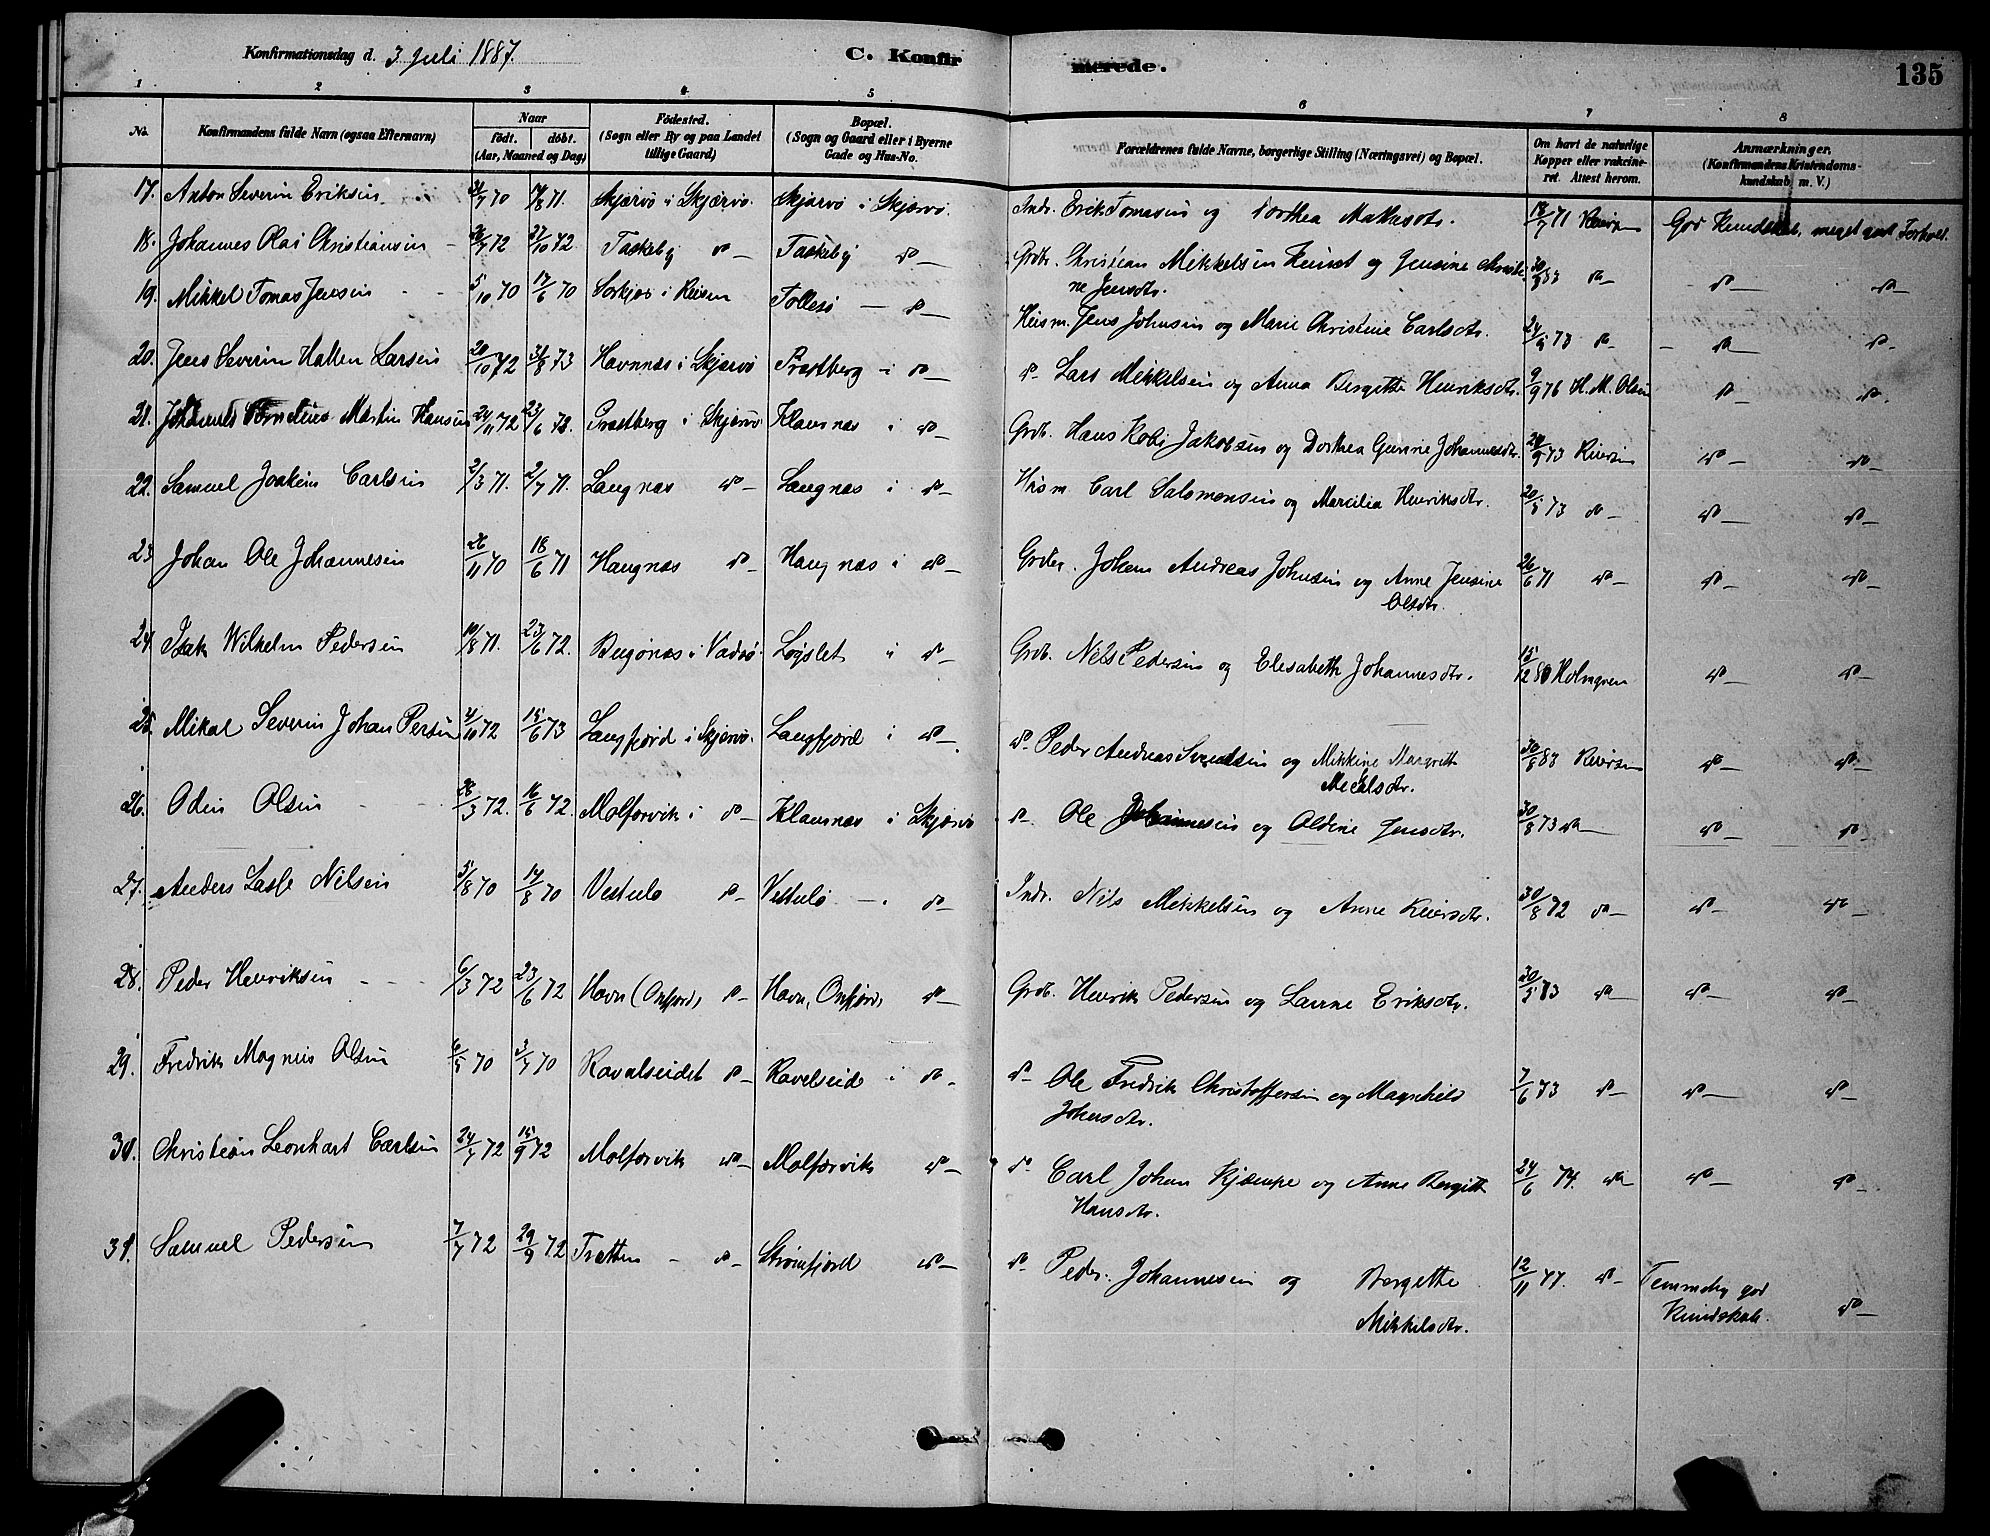 Konfirmationsdag d. 3 Juli 1887.
C. Konfirmerede.
135
1 2 3 4 5 6 7 8
No. Konfirmandens fulde Navn (ogsaa Efternavn) Naar födt. döbt. (Aar, Maaned og Dag) Födested. (Sogn eller By og paa Landet tillige Gaard) Bopæl. (Sogn og Gaard eller i Byerne Gade og Hus-No. Forældrenes fulde Navne, borgerlige Stilling (Næringsvei) og Bopæl. Om havt de naturlige Kopper eller vakcineret. Attest herom. Anmærkninger. (Konfirmandens Kristendomskundskab m. V.)
17. Anton Severin Eriksen 21/7 70 14/8 71. Skjærvö i Skjærvö. Skjærvö i Skjærvö. Indr. Erik Tomasen og Dorthea Mathisdtr. 18/7 71 Reiersen God Kundskab, meget god Forhold.
18. Johannes Olai Christiansen 26/7 72 27/10 72 Taskeby do Taskeby do Grdbr. Christian Mikkelsen Kunst og Jensine
ne Jensdtr. do do do
19. Mikkel Tomas Jensen 5/10 70 17/6 70 Sorkjos i Reisen Follesö do Huusm. Jens Johnsen og Marie Christine Carlsdtr. 24/9 73 do do do
20. Jens Severin Hallen Larsen 20/10 72 31/8 73 Havnnæs i Skjærvö Præstberg i do do Lars Mikkelsen og Anna Bergitte Henriksdtr. 9/9 76 H. M. Olsen do do
21. Johannes Cornelius Martin Hansen 24/11 72 23/6 73. Præstberg i Skjærvö Klavnæs i do Grdb. Hans Jakobsen og Dorthea Johannesdtr. 73 Reiersen do do
22. Samuel Joakim Carlsen 2/3 71. 2/7 71. Langnæs do Langnæs i do Husm. Carl Salomonsen og Marcilia Henriksdtr. 20/5 73 do do do
23. Johan Ole Johannesen 26/11 70 18/6 71 Haugnæs do Haugnæs i do Grdbr. Johan Andreas Johnsen og Anne Jensine
Olsdtr. 26/6 71 do do do
24. Isak Wilhelm Pedersen 10/8 71. 23/6 72. Bugönæs i Vadsö. Lögslet i do Grdb. Nils Pedersen og Elesabeth Johannesdtr. 15/12 80 Holmgren do do
25. Mikal Severin Johan Persen 4/10 72 15/6 73 Langfjord i Skjærvö. Langfjord i do do Peder Andreas Svendsen og Mikkine Margrith
Mikalsdtr. 30/8 83 Reiersen do do
26. Odin Olsen 28/3 72. 16/6 72. Molforvik i do Klavnæs i Skjærvö do Ole Johannesen og Oldine Jensdtr. 30/8 73 do do do
27. Anders Lasse Nilsen 5/8 70 14/8 70 Vestulö do Vestulö do Indr. Nils Mikkelsen og Anne Reiersdtr. 30/8 72 do do do
28. Peder Henriksen 6/3 72 23/6 72 Havn (Oxfjord) do Havn, Oxfjord do Grdb. Henrik Pedersen og Laurne Eriksdtr. 30/5 73 do do do
29. Fredrik Magnus Olsen 6/5 70 3/7 70 Ravalseidet do Ravelseid i do do Ole Fredrik Christoffersen og Magnhild
Johnsdtr. 7/6 73 do do do
30. Christian Leonhart Carlsen 24/7 72 15/9 72 Molforvik do Molforvik do do Carl Johan Kjæmpe og Anne Bergitte
Hansdtr. 24/6 74. do do do
31. Samuel Pedersen 7/7 72 29/9 72 Tretten do Strömfjord do do Peder Johannesen og Bergitte
Mikkelsdtr. 12/11 77. do Temmelig god
Kundskab. do